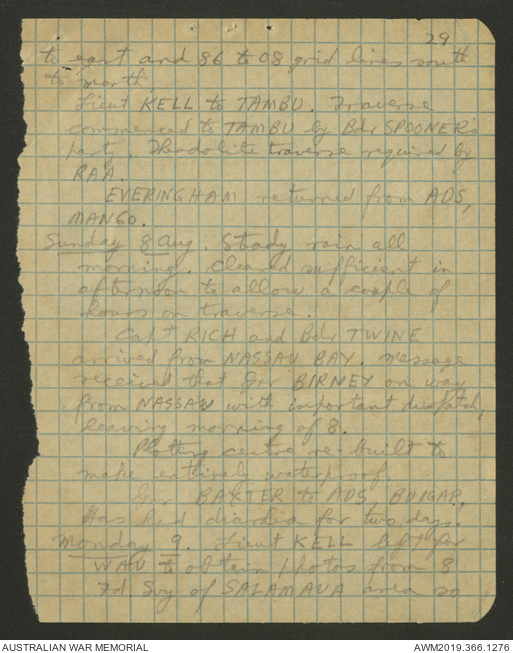 29
to east and 86 to 08 grid lines south
to north.
Lieut KELL to TAMBU. Traverse
commenced to TAMBU by Bdr SPOONER's
party. Theodolite traverse required by
RAA.
EVERINGHAM returned from ADS,
MANGO.
Sunday 8 Aug. Steady rain all
morning. Cleared sufficient in
afternoon to allow a couple of
hours on traverse.
Capt RICH and Bdr TWINE
arrived from NASSAU BAY. Message
received that Gnr BIRNEY on way
from NASSAU with important dispatch,
leaving morning of 8.
Plotting centre re-built to
make entirely waterproof.
Gnr BAXTER to ADS, BUIGAP.
Has had diarrhea for two days.
Monday 9. Lieut KELL left for
WAU to obtain photos from 8
Fd. Svy of SALAMAUA area so
AUSTRALIAN WAR MEMORIAL
AWM2019.366.1276